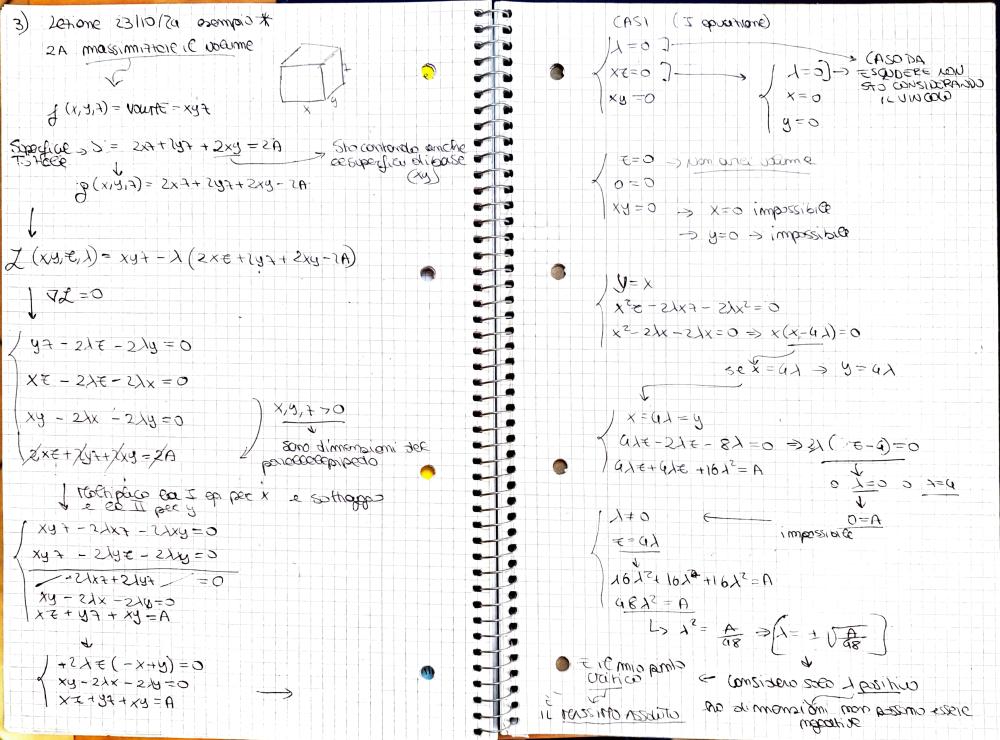 3) Lezione 23/10/24 esempio *
2A massimizzare il volume
x
y
z
f (x,y,z) = volume = xyz
Superficie totale → S = 2xz + 2yz + 2xy = 2A → Sto contando anche
le superfici di base
(xy)
g(x,y,z) = 2xz + 2yz + 2xy - 2A
L (x,y,z,λ) = xyz - λ (2xz + 2yz + 2xy - 2A)
↓ ∇L = 0
yz - 2λz - 2λy = 0
xz - 2λz - 2λx = 0
xy - 2λx - 2λy = 0
2xz + 2yz + 2xy = 2A
x,y,z > 0
↓
sono dimensioni del
parallelepipedo
↓ moltiplico la I eq per x e sottraggo
e la II per y
xyz - 2λxz - 2λxy = 0
xyz - 2λyz - 2λxy = 0
-2λxz + 2λyz = 0
xy - 2λx - 2λy = 0
xz + yz + xy = A
↓
+2λz (-x+y) = 0
xy - 2λx - 2λy = 0
xz + yz + xy = A
→
CASI (I equazione)
λ = 0
xz = 0
xy = 0
λ = 0
x = 0
y = 0
CASO DA
ESCUDERE NON
STO CONSIDERANDO
IL VINCOLO
z = 0 → non avrei volume
0 = 0
xy = 0 → x = 0 impossibile
→ y = 0 → impossibile
y = x
x²z - 2λxz - 2λx² = 0
x² - 2λx - 2λx = 0 ⇒ x(x - 4λ) = 0
se x = 4λ ⇒ y = 4λ
x = 4λ = y
4λz - 2λz - 8λ = 0 ⇒ 2λ( z - 4) = 0
4λz + 4λz + 16λ² = A
o λ = 0 o λ = 4
↓
0 = A
impossibile
λ ≠ 0
z = 4λ
↓
16λ² + 16λ² + 16λ² = A
48λ² = A
↳ λ² = A/48 ⇒ [λ = ± √A/48]
↓
← considero solo λ positivo
le dimensioni non possono essere
negative
È il mio punto
critico
↓
è
il massimo assoluto